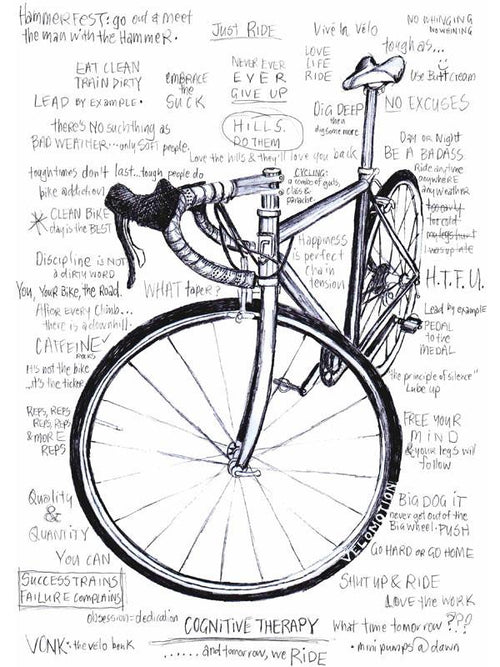 HAMMERFEST: go out & meet
the man with the HAMMER.
JUST RIDE
Vive le Vélo
NO WHINGING
NO WHINING
EAT CLEAN
TRAIN DIRTY
EMBRACE
the
SUCK
NEVER EVER
EVER
GIVE UP
LOVE
LIFE
RIDE
tough as...
Use Butt Cream
LEAD by EXAMPLE.
DIG DEEP
then
dig some more
NO EXCUSES
there's NO such thing as
BAD WEATHER...only SOFT people.
HILLS.
DO THEM
Love the hills & they'll love you back
Day or Night
BE A BADASS
Ride anytime
anywhere
any weather
tough times don't last...tough people do
bike addiction
CYCLING:
a combo of guts,
class &
panache
too early
too cold
my legs hurt
I was up late
CLEAN BIKE
day is the BEST
Happiness
is perfect
Chain
tension
Discipline is NOT
a DIRTY WORD
H.T.F.U.
You, Your Bike, the Road.
WHAT taper?
After every climb...
there is a downhill.
Lead by example
PEDAL
to the
MEDAL
CAFFEINE
rocks
It's not the bike
..it's the ticker
"the principle of silence"
Lube up
REPS, REPS
REPS, REPS
& MORE
REPS
FREE YOUR
MIND
& your legs will
follow
Quality
&
QUANTITY
BIG DOG IT
never get out of the
Big wheel. PUSH
VELOMOTION
GO HARD OR GO HOME
YOU CAN
SUCCESS TRAINS
FAILURE COMPLAINS
SHUT UP & RIDE
LOVE the WORK
obsession = dedication
COGNITIVE THERAPY
what time tomorrow???
VONK: the velo bonk
......and tomorrow, we RIDE
• mini pumps @ dawn